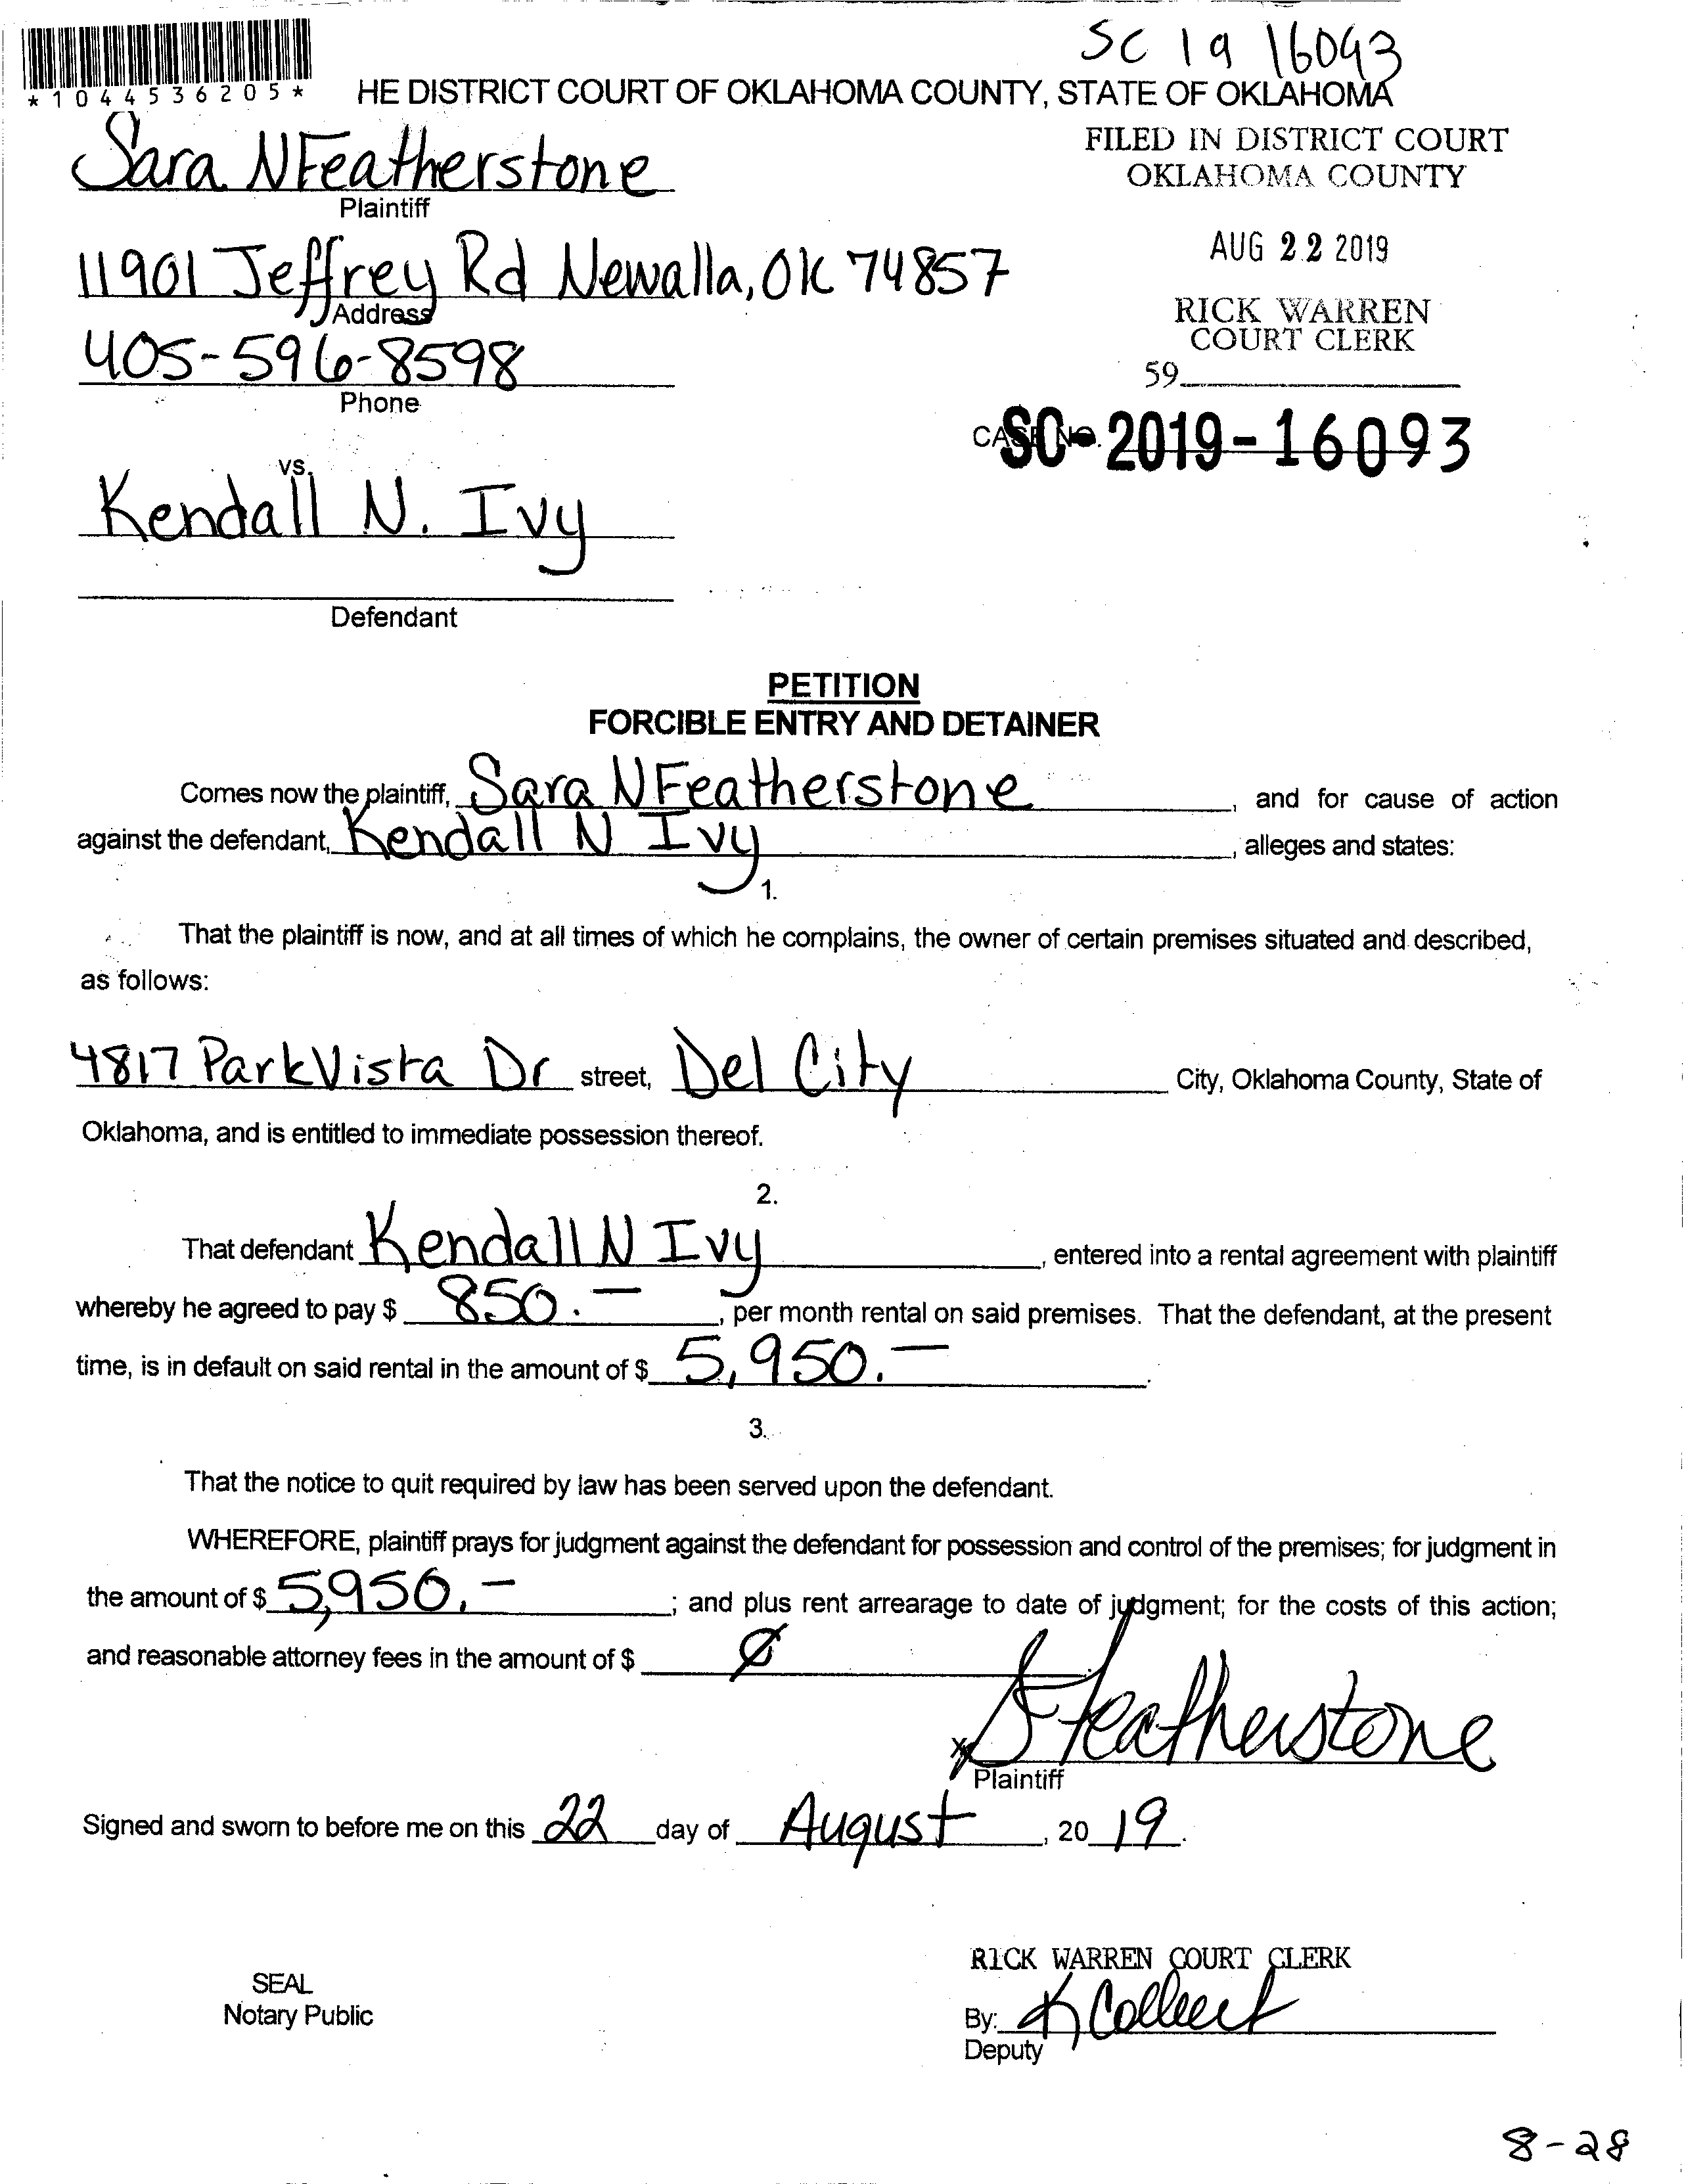 SC 19 16093
*1044536205*
HE DISTRICT COURT OF OKLAHOMA COUNTY, STATE OF OKLAHOMA
FILED IN DISTRICT COURT
OKLAHOMA COUNTY
Sara N Featherstone
Plaintiff
AUG 22 2019
11901 Jeffrey Rd Newalla, OK 74857
Address
RICK WARREN
COURT CLERK
405-596-8598
59
Phone
CASE NO. SC-2019-16093
vs.
Kendall N. Ivy
Defendant
PETITION
FORCIBLE ENTRY AND DETAINER
Comes now the plaintiff, Sara N Featherstone, and for cause of action
against the defendant, Kendall N Ivy, alleges and states:
1.
That the plaintiff is now, and at all times of which he complains, the owner of certain premises situated and described,
as follows:
4817 ParkVista Dr street, Del City City, Oklahoma County, State of
Oklahoma, and is entitled to immediate possession thereof.
2.
That defendant Kendall N Ivy, entered into a rental agreement with plaintiff
whereby he agreed to pay $ 850.-, per month rental on said premises. That the defendant, at the present
time, is in default on said rental in the amount of $ 5,950.-.
3.
That the notice to quit required by law has been served upon the defendant.
WHEREFORE, plaintiff prays for judgment against the defendant for possession and control of the premises; for judgment in
the amount of $ 5,950.-; and plus rent arrearage to date of judgment; for the costs of this action;
and reasonable attorney fees in the amount of $ Ø
x SFeatherstone
Plaintiff
Signed and sworn to before me on this 22 day of August, 2019.
RICK WARREN COURT CLERK
SEAL
Notary Public
By: K
Deputy
8-28